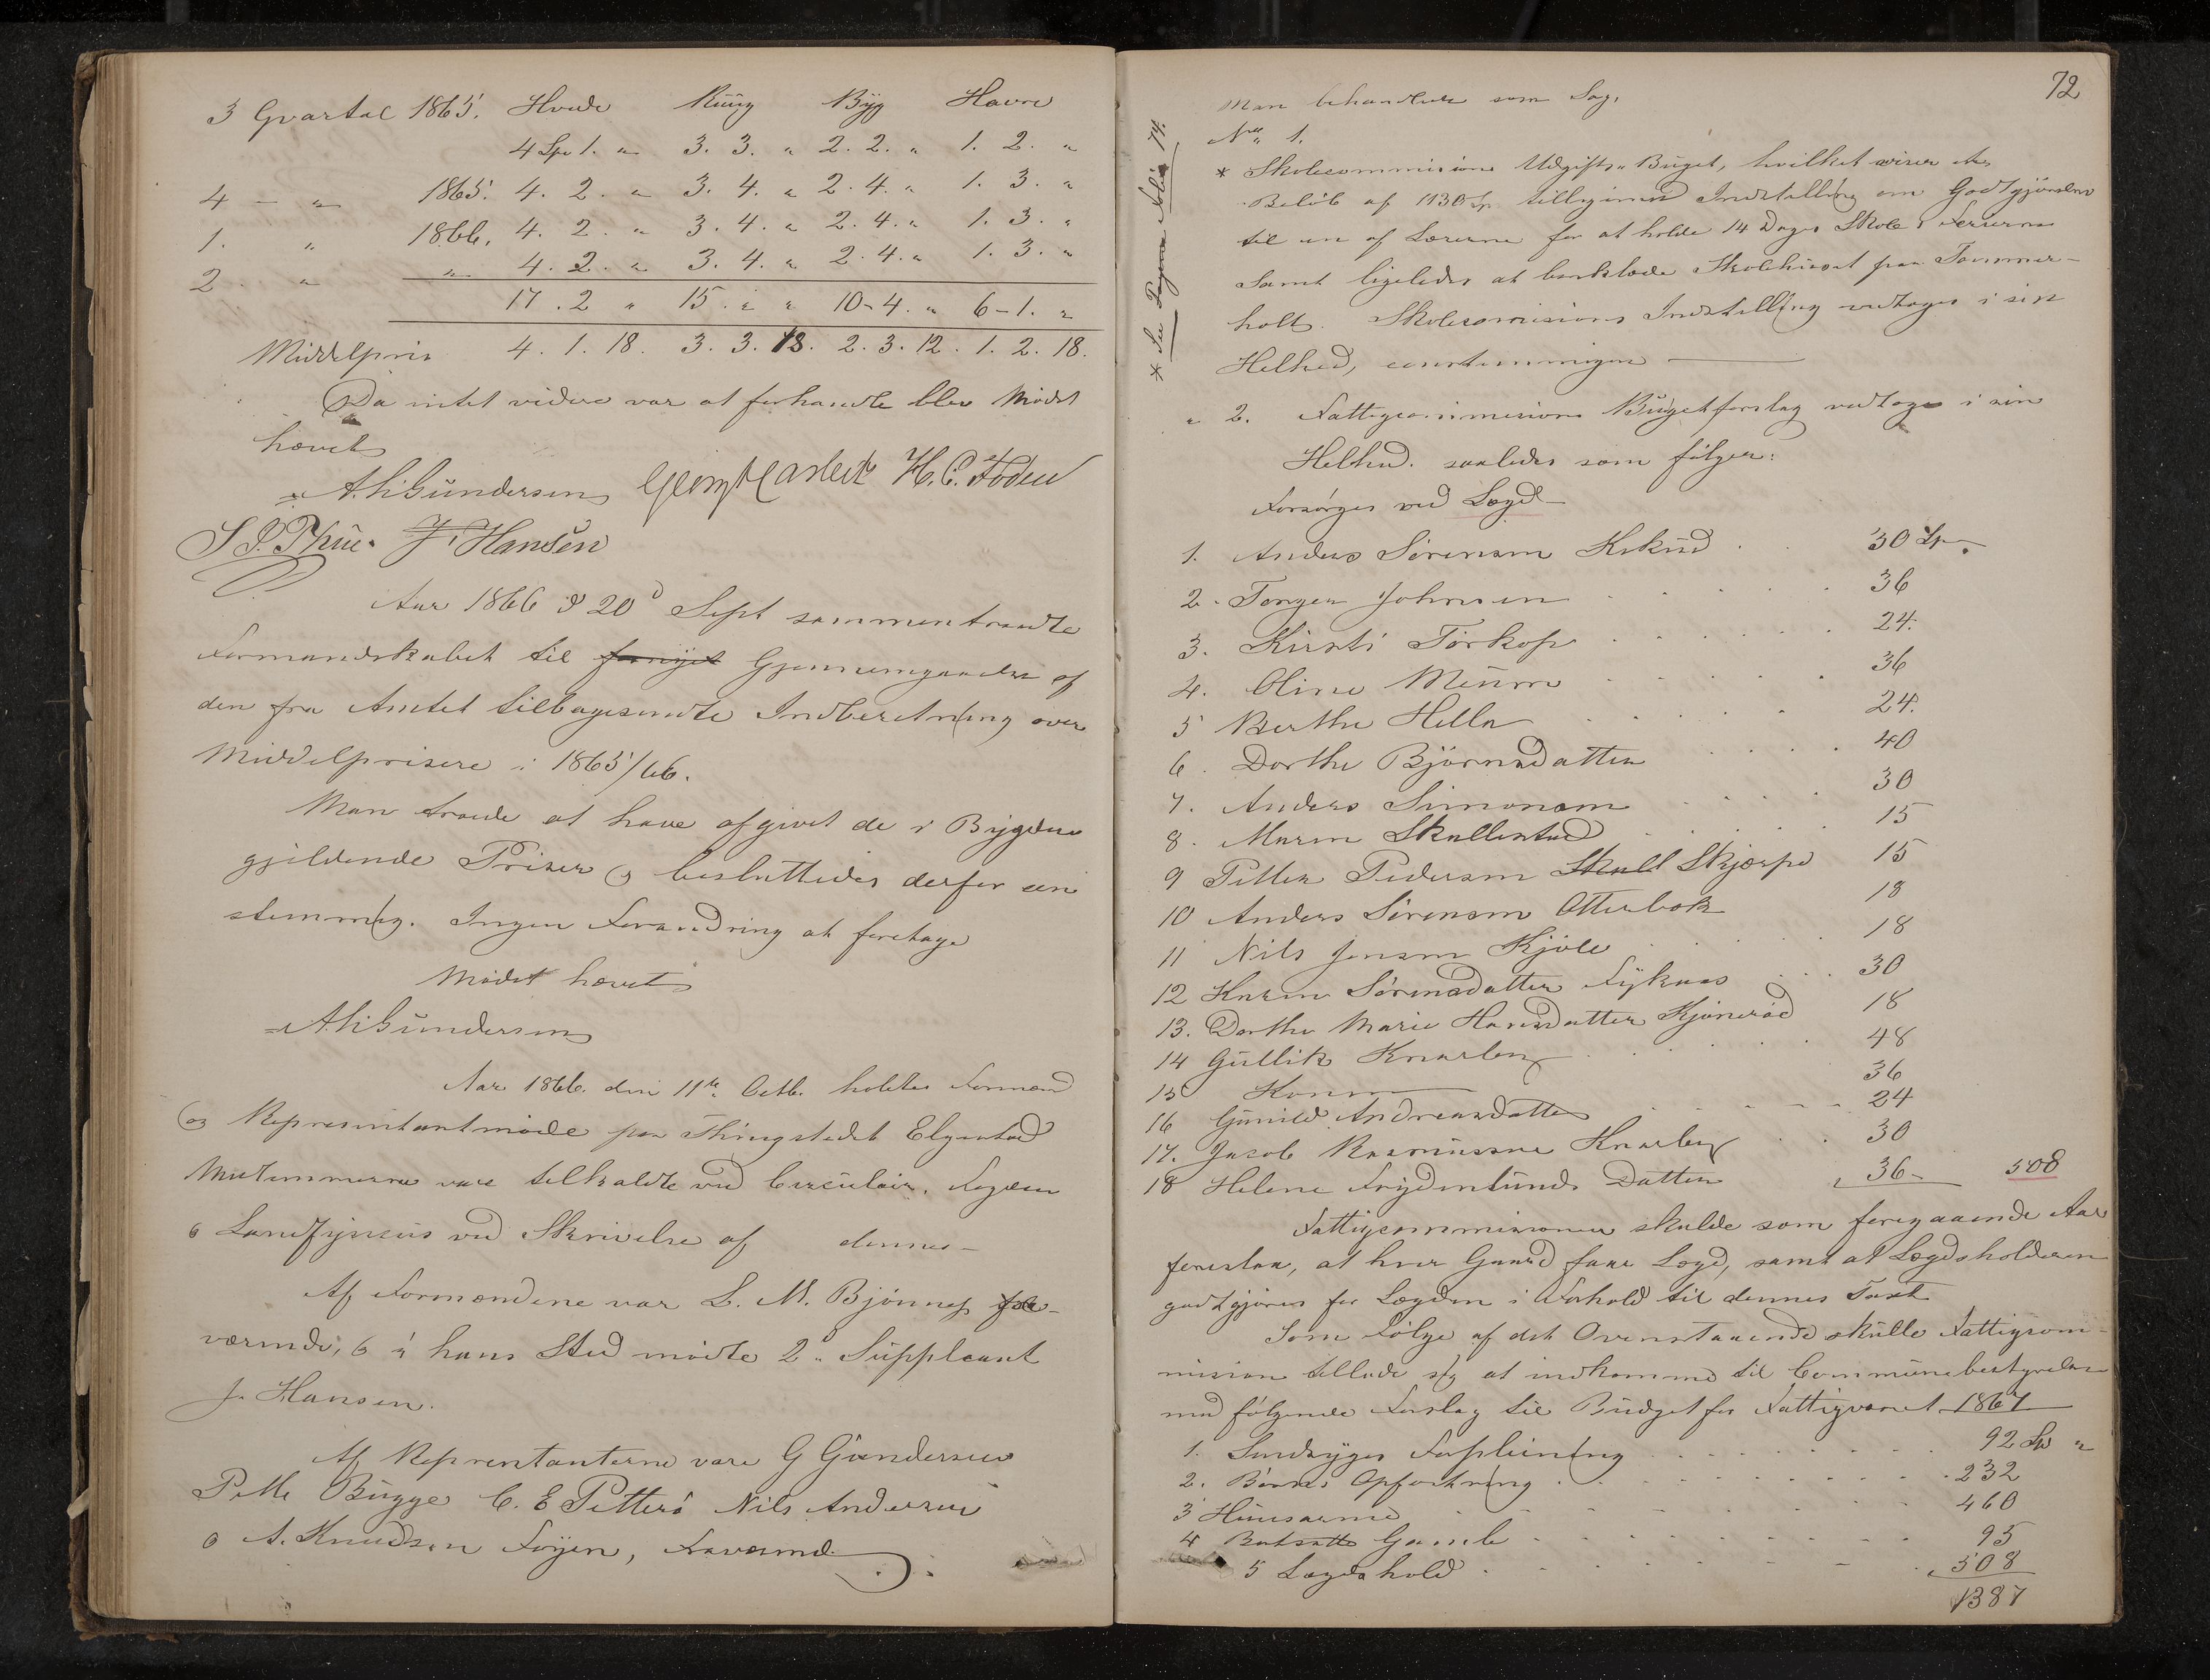 3 Qvartal 1865. Hvede Rüug Byg Havre
4 Sp 1. " 3. 3. " 2. 2. " 1. 2. "
4 — " 1865. 4. 2. " 3. 4. " 2. 4. " 1. 3. "
1. " 1866. 4. 2. " 3. 4. " 2. 4. " 1. 3. "
2. " " 4. 2. " 3. 4. " 2. 4. " 1. 3. "
17. 2 " 15. " " 10-4. " 6-1. "
Middelpris 4. 1. 18. 3. 3. 18. 2. 3. 12. 1. 2. 18.
Da intet videre var at forhandle blev Mødet
hævet
A. Gundersen H. C. Foden
S P. Thue. J. Hansen
Aar 1866 d 20d Sept sammentraadte
Formandskabet til fornyet Gjennemgaaelse af
den fra Amtet tilbagesendte Indberetning over
Middelprisere i 1865/66.
Man troede at have afgivet de i Bygden
gjeldende Priser og besluttedes derfor een
stemmig. Ingen Forandring at foretage
Mødet hævet
A. Gundersen
Aar 1866. den 11te Octb. holdtes Formand
og Representantmøde paa Thingstedet Elgestad
vare tilkaldte ved Circulair, Fogden
o Landfysicus ved Skrivelse af dennes —
Af Formændene var L. M. Bjønnes fra-
værende, o i hans Sted mødte 2d Suppleant
J. Hansen.
Af Reprentanterne vare G Gundersen
Pette Bugge C. E Petterö Nils Andersen
o A. Knudsen Føyen, Fraværend.
72
Man behandlede som Sag.
No 1.
* See Pagina Folio 74.
* Skolecommisions Udgifts-Buget, hvilket viser et
Beløb af 1130 Sp tilligemed Indstilling om Godtgjørelse
til en af Lærerne for at holde 14 Dages Skole i Ferierne
Samt ligeledes at bordklæde Skolehuset paa Tommer-
holt. Skolecomisions Indstilling vedtoges i sin
Helhed, eenstemmigen
" 2. Fattigcommisions Bügetforslag vedtoges i sin
Helhed. saaledes som følger:
Forsørges ved Lægd
1. Anders Sørensen 30 Sp.
2. Torger Johnsen 36
3. Kirsti Torkop 24.
4. Oline Müum 36
5 Berthe Hella 24.
6. Dorthe Bjørnsdatter 40
7. Anders Simonsen 30
8. Maren Skallestad 15
9 Petter Pedersen Skall Skjærpe 15
10 Anders Sørensen Otterbæk 18
11 Nils Jensen Kjøle 18
12 Karen Sørensdatter Fyknes 30
13. Dorthe Marie Hansdatter Kjønerød 18
14 Gullik Knarberg 48
15 Konen 36
16 Günild Andreasdatter 24
17. Jacob Rasmussen Knarberg 30
18 Helene Frydenlunds Datter 36 — 508
Fattigcommisionen skulde som foregaaende Aar
foreslaa, at hver Gaard faar Lægd, samt at Lægdsholderen
godtgjøres for Lægden i Forhold til dennes Taxt
Som Følge af det Ovenstaaende skulle Fattigcom-
mision tillade sig at indkomme til Communebestyrelsen
med følgende Forslag til Büdget for Fattigvæsenet 1867
1. Sindsyges Forpleining 92 Sp "
2. Børns Opfostring 232
3 Huusarme 460
4 Bortsatte Gamle 95
5 Lægdshold 508
1387